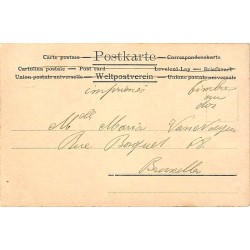 Carte postale — Postkarte — Correspondenzkarte
Cartolina postale — Post card — Levelező-Lap — Briefkaart
Union postale universelle — Weltpostverein — Unione postale universale
imprimés timbre
au
dos
Mdlle Maria
Rue Bosquet 68
Bruxelles